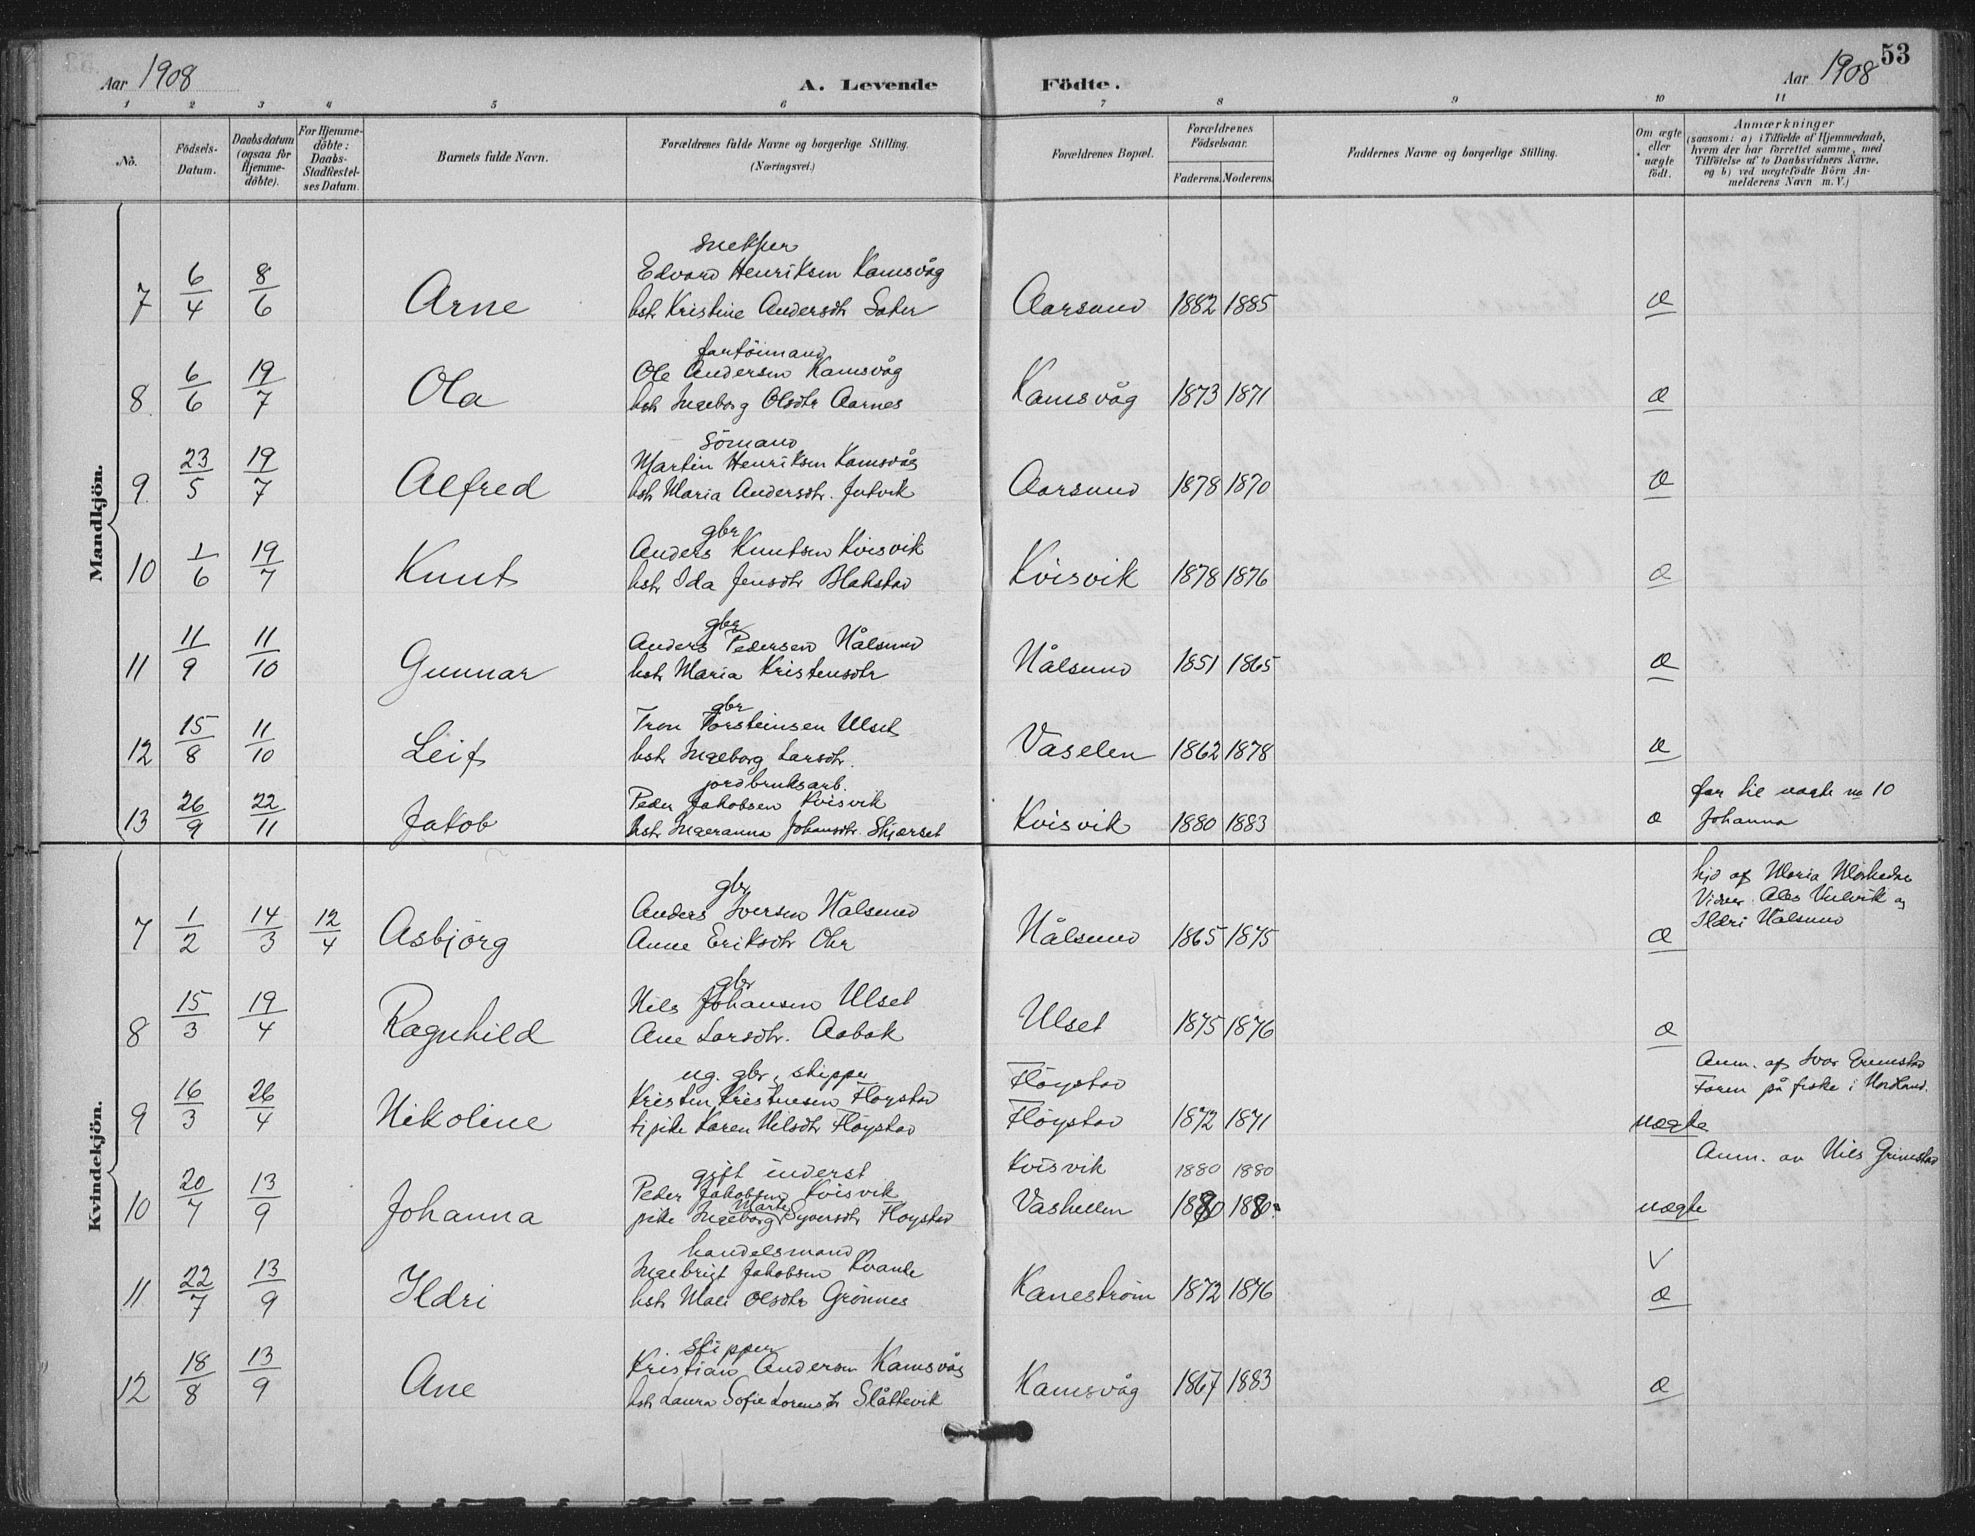 53
Aar 1908
A. Levende Födte.
Aar 1908
1 2 3 4 5 6 7 8 9 10 11
No.
Födsels-Datum.
Daabsdatum (ogsaa for Hjemme-döbte).
For Hjemme-döbte: Daabs-Stadfæstel-ses Datum.
Barnets fulde Navn.
Forældrenes fulde Navne og borgerlige Stilling. (Næringsvei.)
Forældrenes Bopæl.
Forældrenes Födselsaar.
Faderens. Moderens.
Faddernes Navne og borgerlige Stilling.
Om ægte eller uægte födt.
Anmærkninger
(saasom: a) i Tilfælde af Hjemmedaab,
hvem der har forrettet samme, med
Tilföielse af to Daabsvidners Navne,
og b) ved uægtefödte Börn An-
melderens Navn m. V.)
Mandkjön.
snekker
7 6/4 8/6 Arne Edvard Henriksen Kamsvåg
hstr Kristine Andersdtr Sater Aarsund 1882 1885 æ
fartöimand
8 6/6 19/7 Ola Ole Andersen Kamsvåg
hstr Ingeborg Olsdtr Aarnes Kamsvåg 1873 1871 æ
sömand
9 23/5 19/7 Alfred Martin Henriksen Kamsvåg
hstr Maria Andersdtr. Jutvik Aarsund 1878 1870 æ
gbr
10 1/6 19/7 Knut Anders Knutsen Kvisvik
hstr Ida Jensdtr Blakstad Kvisvik 1878 1876 æ
gbr
11 11/9 11/10 Gunnar Anders Pedersen Nålsund
hstr Maria Kristensdtr Nålsund 1851 1865 æ
gbr
12 15/8 11/10 Leif Tron Torsteinsen Ulset
hstr Ingeborg Larsdtr. Vaselen 1862 1878 æ
jordbruksarb.
13 26/9 22/11 Jakob Peder Jakobsen Kvisvik
hstr Ingeranna Johansdtr. Skjærset Kvisvik 1880 1883 æ
far til uægte no 10
Johanna
Kvindekjön.
gbr
7 1/2 14/3 12/4 Asbjörg Anders Iversen Nålsund
Anne Eriksdtr Ohr Nålsund 1865 1875 æ
hjd af Maria
Vidner og
Ildri Nålsund
gbr
8 15/3 19/4 Ragnhild Nils Johansen Ulset
Ane Larsdtr. Aabak Ulset 1875 1876 æ
ug. gbr, skipper
9 16/3 26/4 Nikoline Kristen Kristensen Flöystad Flöystad
pike Karen Nilsdtr Flöystad Flöystad 1872 1871 uægte
Anm. af Ivar
Faren på fiske i Nordland.
gift inderst
10 20/7 13/9 Johanna Peder Jakobsen Kvisvik Kvisvik 1880 1880
pike Ingeborg Marte Syversdtr Flöystad Vashullen 1880 1880 uægte
Anm. av Nils Grimstad
handelsmand
11 22/7 13/9 Ildri Ingebrigt Jakobsen Kvande
hstr Mali Olsdtr Grönnes Kaneström 1872 1876 V æ
skipper
12 18/8 13/9 Ane Kristian Andersen Kamsvåg
hstr Laura Sofie Lorensdtr Slåttevik Kamsvåg 1867 1883 æ